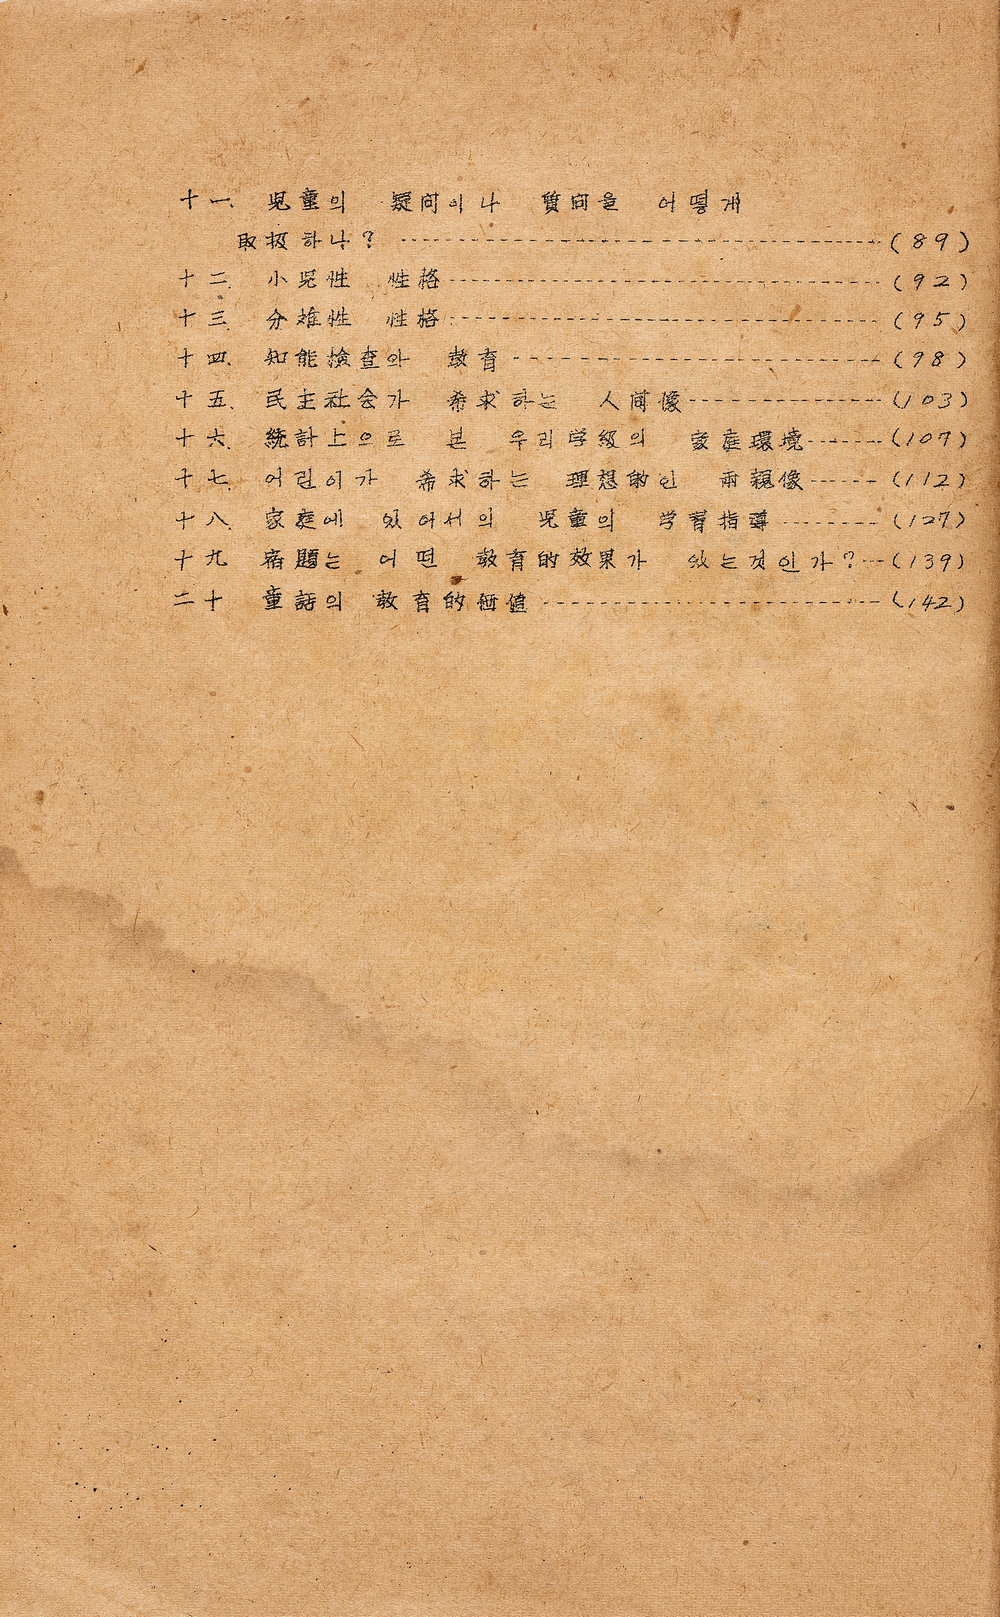 十一. 児童의 疑问이나 質问을 어떻게
取扱하나? ------------------------------ (89)
十二. 小児性 性格 ------------------------------ (92)
十三. 分雄性 性格 ------------------------------ (95)
十四. 知能検査와 教育 ------------------------------ (98)
十五. 民主社会가 希求하는 人间像 --------------- (103)
十六. 統計上으로 본 우리学級의 家庭環境 ------ (107)
十七. 어린이가 希求하는 理想的인 両親像 ------ (112)
十八. 家庭에 있어서의 児童의 学習指導 --------- (127)
十九 宿題는 어떤 教育的効果가 있는것인가? --- (139)
二十 童話의 教育的価値 ------------------------------ (142)